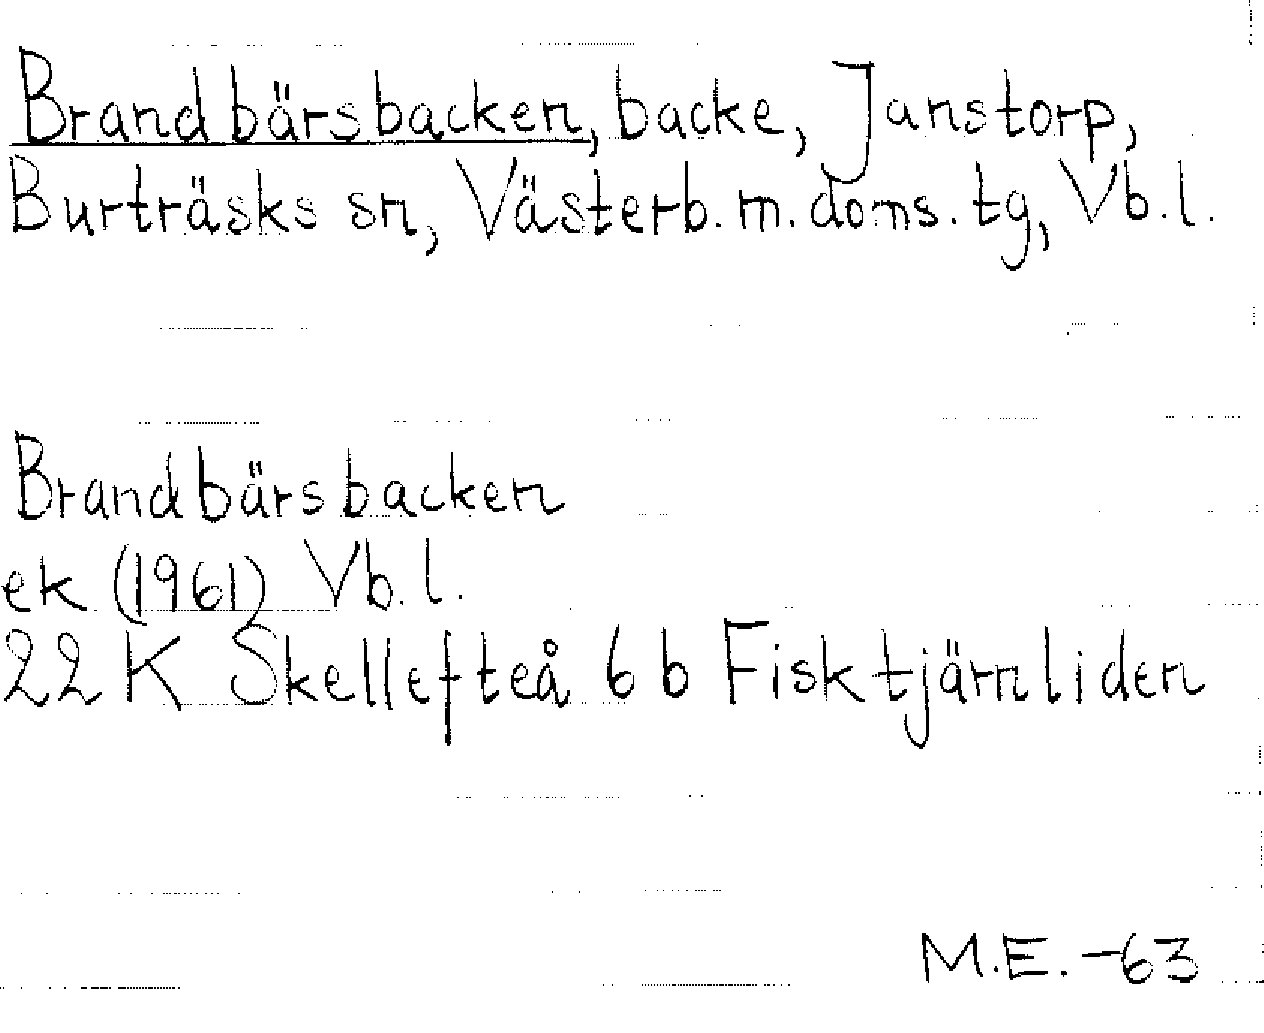 Brandbärsbacken, backe, Janstorp,
Burträsks sn, Västerb. m. doms. tg, Vb. l.
Brandbärsbacken
ek (1961) Vb. l.
22 K Skellefteå 6 b Fisktjärnliden
M.E. -63